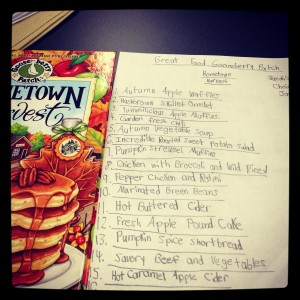 Gooseberry Patch
METOWN
vest
Great Food Gooseberry Patch
Hometown
Harvest
1. Autumn Apple Waffles
2. Mushroom Skillet Omelet
3. Yummilicious Apple Muffins
4. Garden fresh Chili
5. Autumn Vegetable Soup
6. Incredible Roasted Sweet Potato Salad
7. Pumpkin Streusel Muffins
8. Chicken with Broccoli and Wild Rice
9. Pepper Chicken and Rotini
10. Marinated Green Beans
11. Hot Buttered Cider
12. Fresh Apple Pound Cake
13. Pumpkin Spice shortbread
14. Savory Beef and Vegetables
15. Hot Caramel Apple Cider